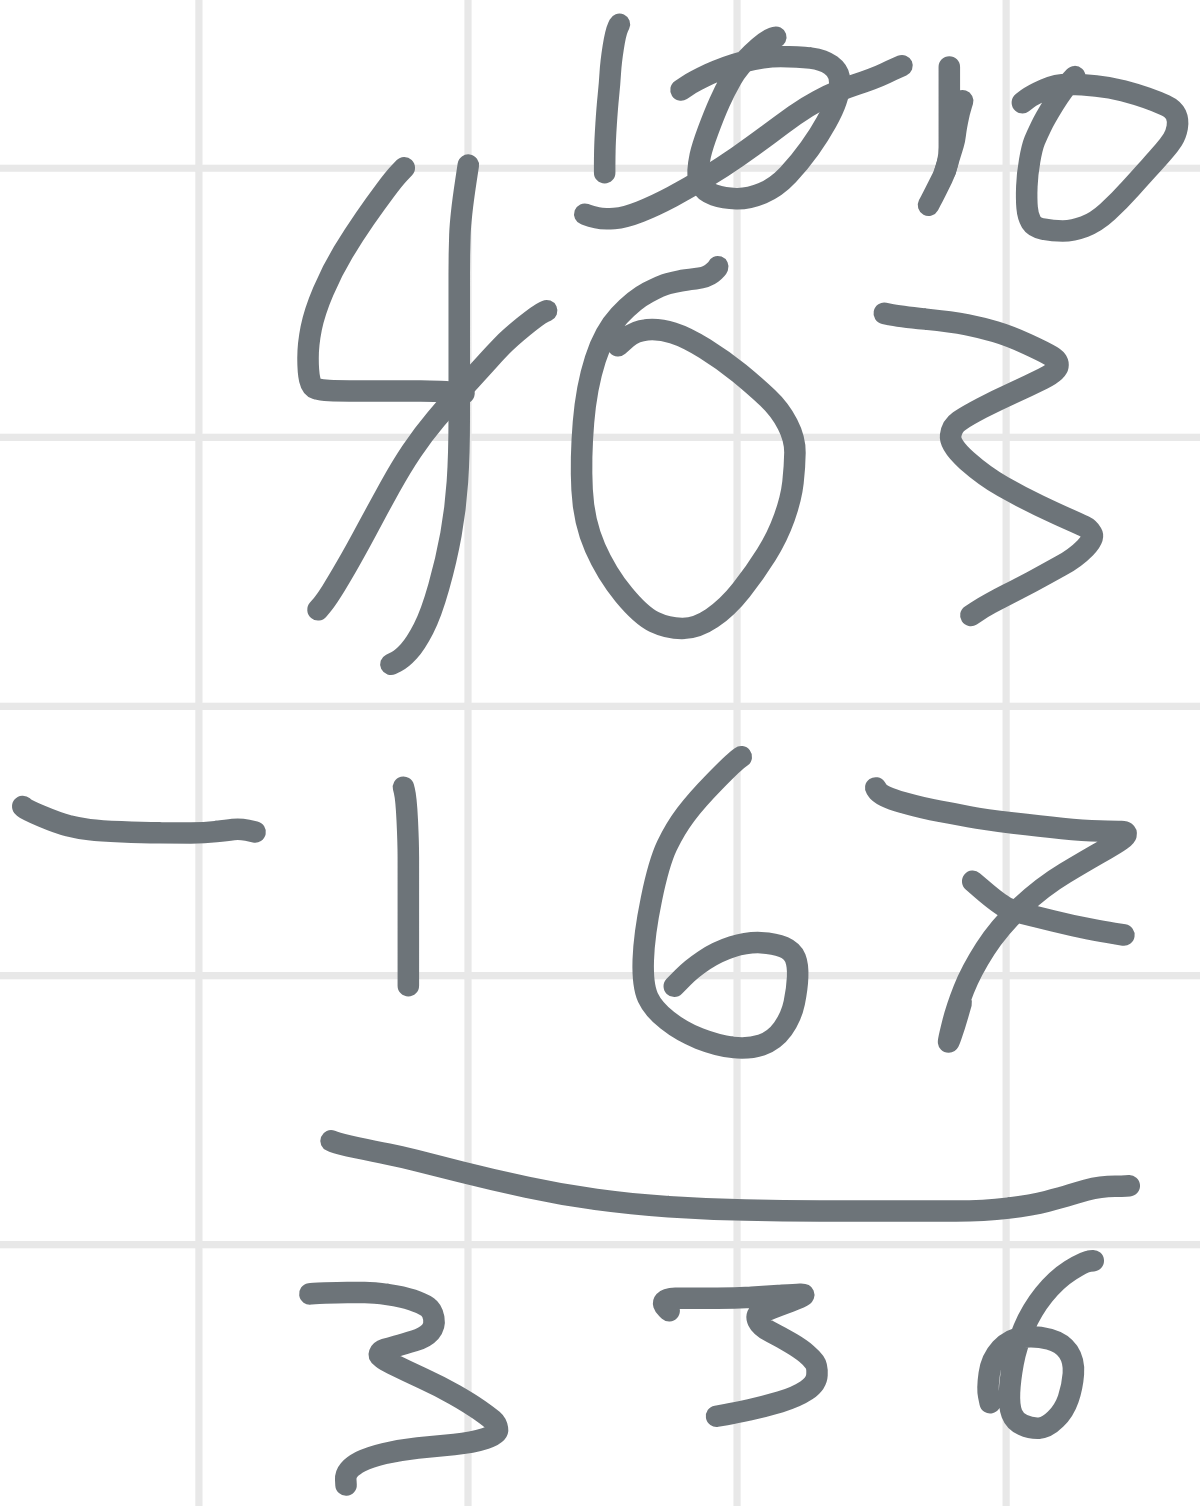 10 10
403
- 167
336